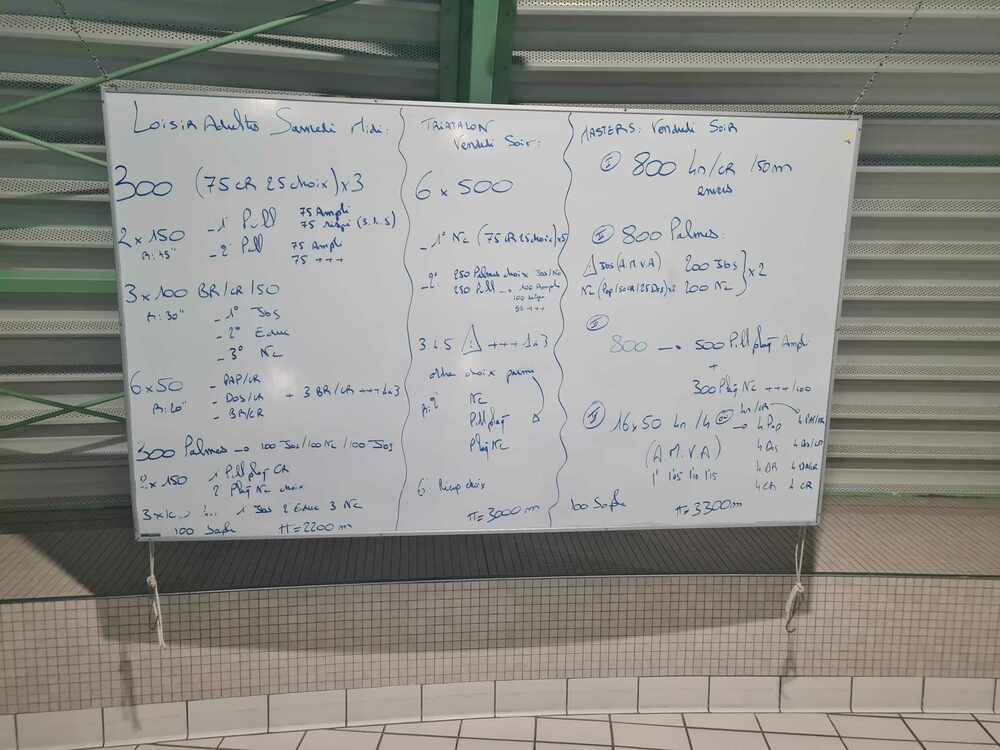 Loisir Adultes Samedi Midi.
300 (75 CR 25 choix) x 3
2 x 150 - 1° Pull 75 Ampli
75 respi (3.1.5)
R: 45" - 2° Pull 75 Ampli
75 +++
3 x 100 BR/CR/50
R: 30" - 1° Jbs
- 2° Educ
- 3° NC
6 x 50 - PAP/CR
R: 20" - DOS/CR + 3 BR/CR +++ 1 à 3
- BR/CR
300 Palmes → 100 Jbs/100 NC/100 Jbs
2 x 150 1 Pull plaq CR
2 Plaq NC choix
1 Jbs 2 Educ 3 NC
100 Souple TT = 2200 m
TRIATHLON
Vendredi Soir:
6 x 500
- 1° NC (75 CR 25 choix) x 5
- 2° 250 Palmes choix Jbs/NC
250 Pull → 100 Ampli
100 respi
50 +++
3.4.5 ⚠ +++ 1 à 3
choix parmi
NC
Pull plaq
Plaq NC
6. Récup choix
TT = 3000 m
MASTERS: Vendredi Soir
① 800 4n/CR /50m
envers
800 Palmes.
⚠ Jbs (A.M.V.A) 200 Jbs
x 2
NC (Pap/50CR/25Dos) x2 200 NC
800 → 500 Pull plaq Ampli
+
300 Plaq NC +++ /100
16 x 50 4n /4 ou 4n/CR
→ 4 Pap 4 PAP/CR
(A.M.V.A) 4 Dos 4 Dos/CR
1' 1'05 1'10 1'15 4 BR 4 BR/CR
4 CR 4 CR
100 Souple TT = 3300 m